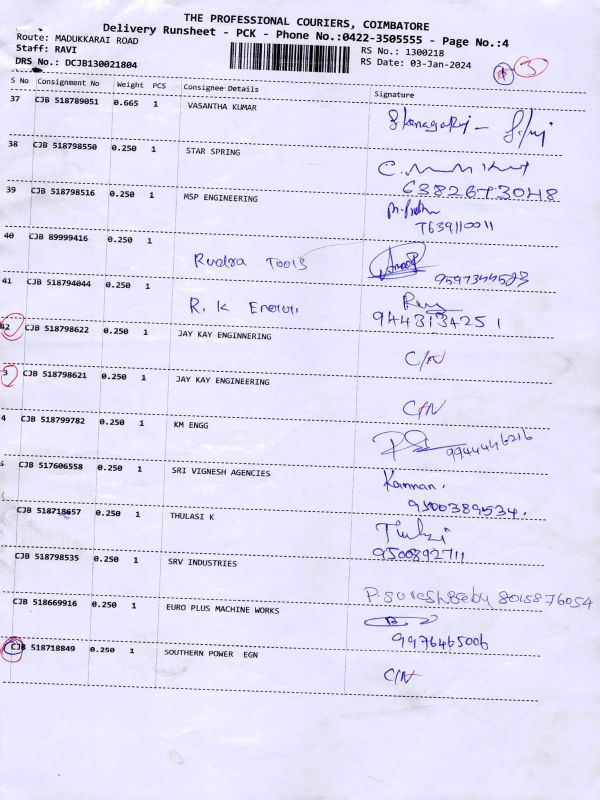 THE PROFESSIONAL COURIERS, COIMBATORE
Delivery Runsheet - PCK - Phone No.:0422-3505555 - Page No.:4
Route: MADUKKARAI ROAD
Staff: RAVI
RS No.: 1300218
DRS No.: DCJB130021804
RS Date: 03-Jan-2024
3
S No Consignment No Weight PCS Consignee Details Signature
37 CJB 518789051 0.665 1 VASANTHA KUMAR
38 CJB 518798550 0.250 1 STAR SPRING
6382673048
39 CJB 518798516 0.250 1 MSP ENGINEERING
7639110011
40 CJB 89999416 0.250 1
Rudra Tools
9597344583
41 CJB 518794044 0.250 1
R. K
9443134251
42 CJB 518798622 0.250 1 JAY KAY ENGINNERING
C/N
3 CJB 518798621 0.250 1 JAY KAY ENGINEERING
C/N
4 CJB 518799782 0.250 1 KM ENGG
9944446216
5 CJB 517606558 0.250 1 SRI VIGNESH AGENCIES
Kannan.
9500389534.
CJB 518718657 0.250 1 THULASI K
9500892711
CJB 518798535 0.250 1 SRV INDUSTRIES
8015876054
CJB 518669916 0.250 1 EURO PLUS MACHINE WORKS
9976465006
CJB 518718849 0.250 1 SOUTHERN POWER EGN
C/N